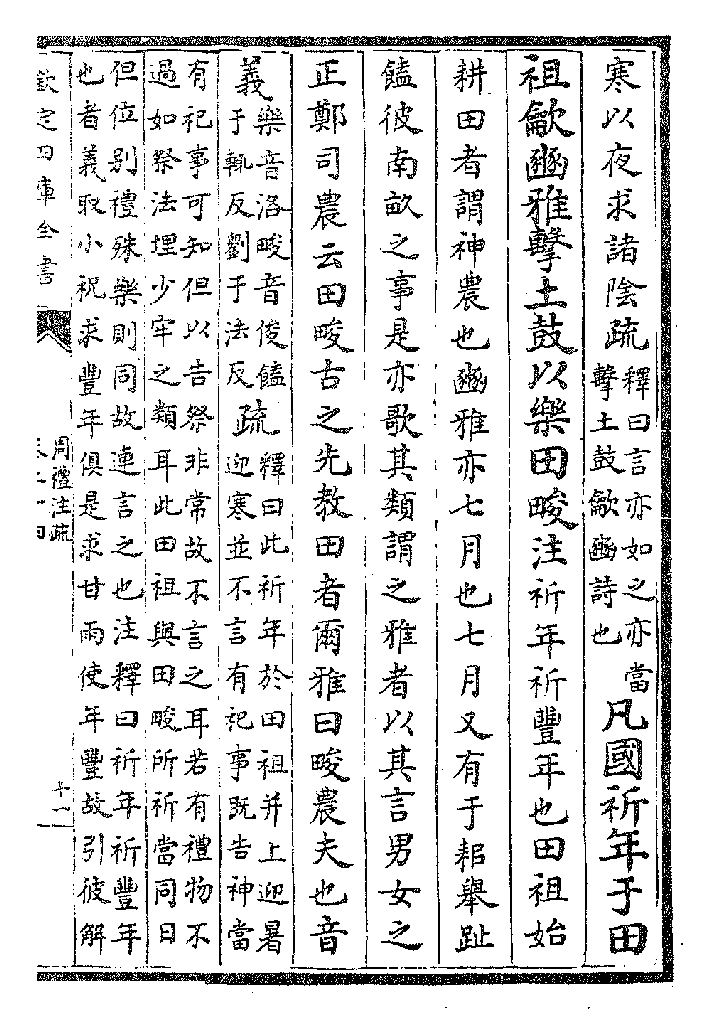 寒以夜求諸陰疏釋曰言亦如之亦當
擊土鼓龡豳詩也凡國祈年于田
祖龡豳雅擊土鼓以樂田畯注祈年祈豐年也田祖始
耕田者謂神農也豳雅亦七月也七月又有于耜舉趾
饁彼南畝之事是亦歌其類謂之雅者以其言男女之
正鄭司農云田畯古之先教田者爾雅曰畯農夫也音
義樂音洛畯音俊饁
于輒反劉于法反疏釋曰此祈年於田祖并上迎暑
迎寒並不言有祀事既告神當
有祀事可知但以告祭非常故不言之耳若有禮物不
過如祭法埋少牢之類耳此田祖與田畯所祈當同日
但位别禮殊樂則同故連言之也注釋曰祈年祈豐年
也者義取小祝求豐年俱是求甘雨使年豐故引彼解
欽定四庫全書
周禮注疏
十一